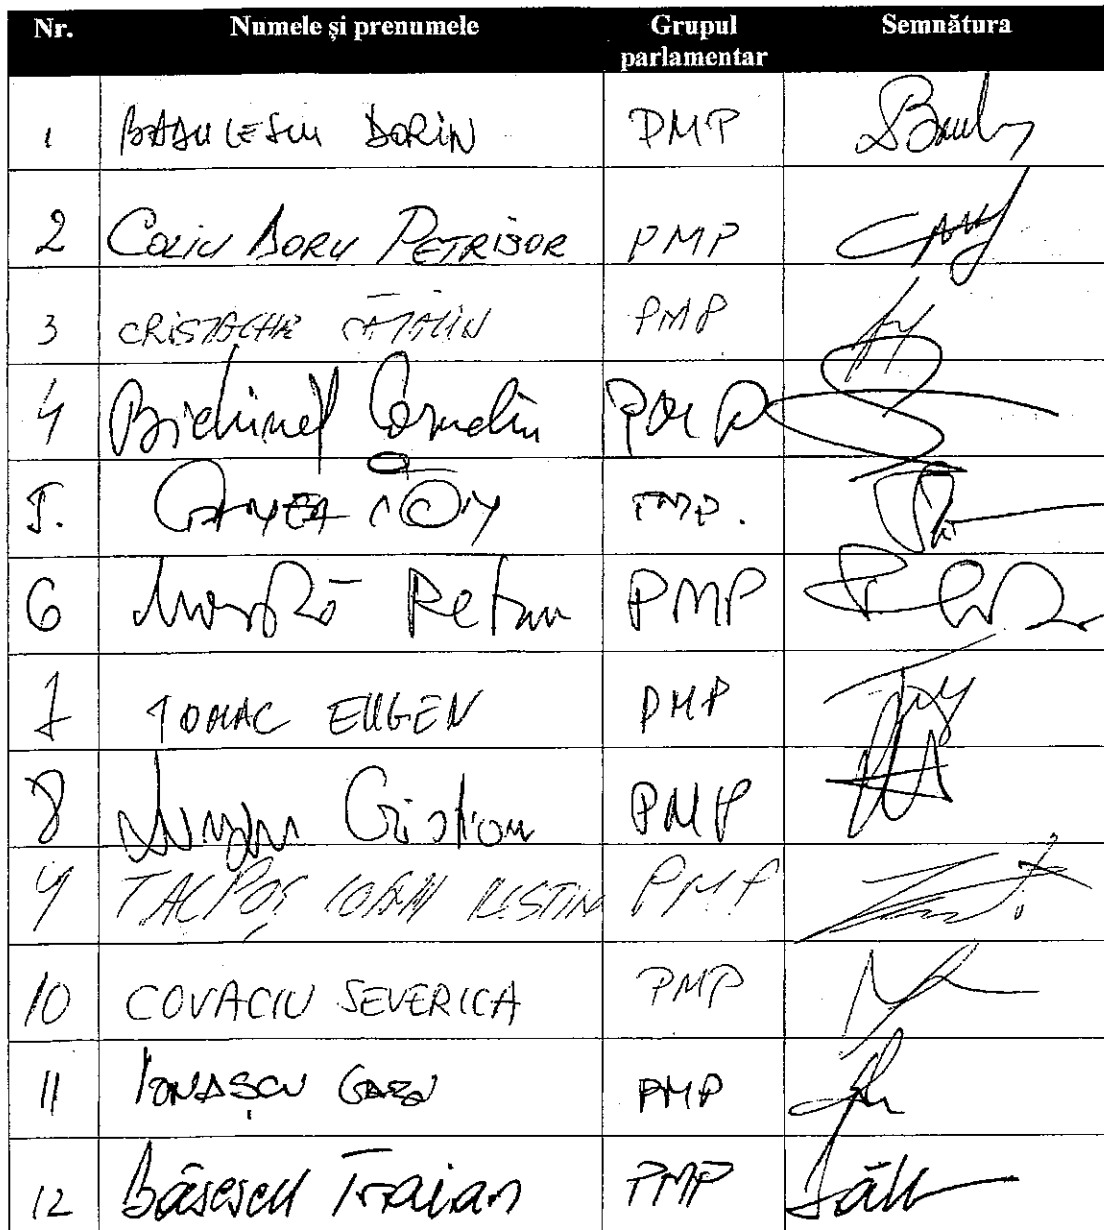 Nr. Numele și prenumele Grupul parlamentar Semnătura
1 BĂDULESCU DORIN PMP
2 COLIU DORU PETRISOR PMP
3 CRISTACHE CĂTĂLIN PMP
4 Bichineț Corneliu PMP
5. PMP.
6 Movilă Petru PMP
7 TOMAC EUGEN PMP
8 Cristian PMP
9 TALPOȘ IOAN IUSTIN PMP
10 COVACIU SEVERICA PMP
11 IONAȘCU PMP
12 Băsescu Traian PMP